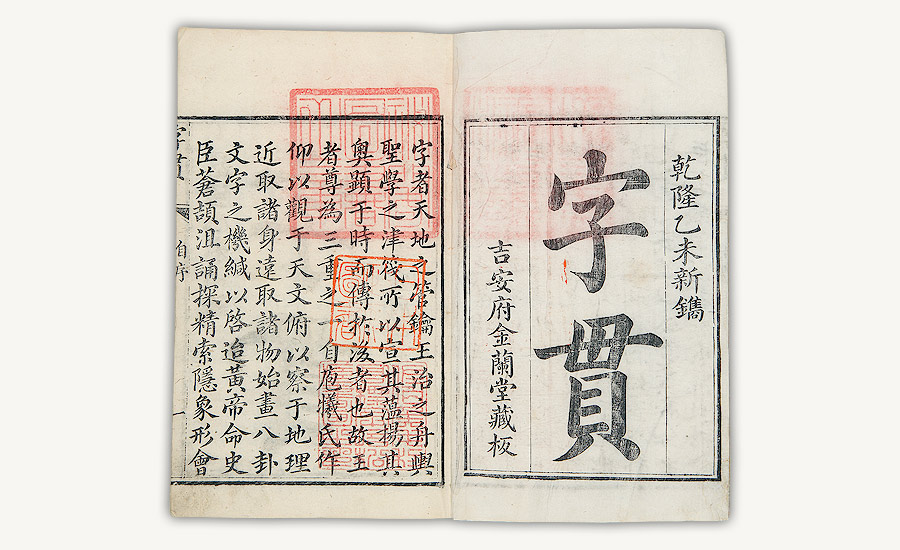 乾隆乙未新鐫
字貫
吉安府金蘭堂藏板
字者天地之管鑰王治之舟輿
聖學之津筏所以宣其蘊揚其
奧顯于時而傳於後者也故王
者尊為三重之一自庖犧氏作
仰以觀于天文俯以察于地理
近取諸身遠取諸物始畫八卦
文字之機緘以啓迨黃帝命史
臣蒼頡沮誦探精索隱象形會
字貫
自序
一